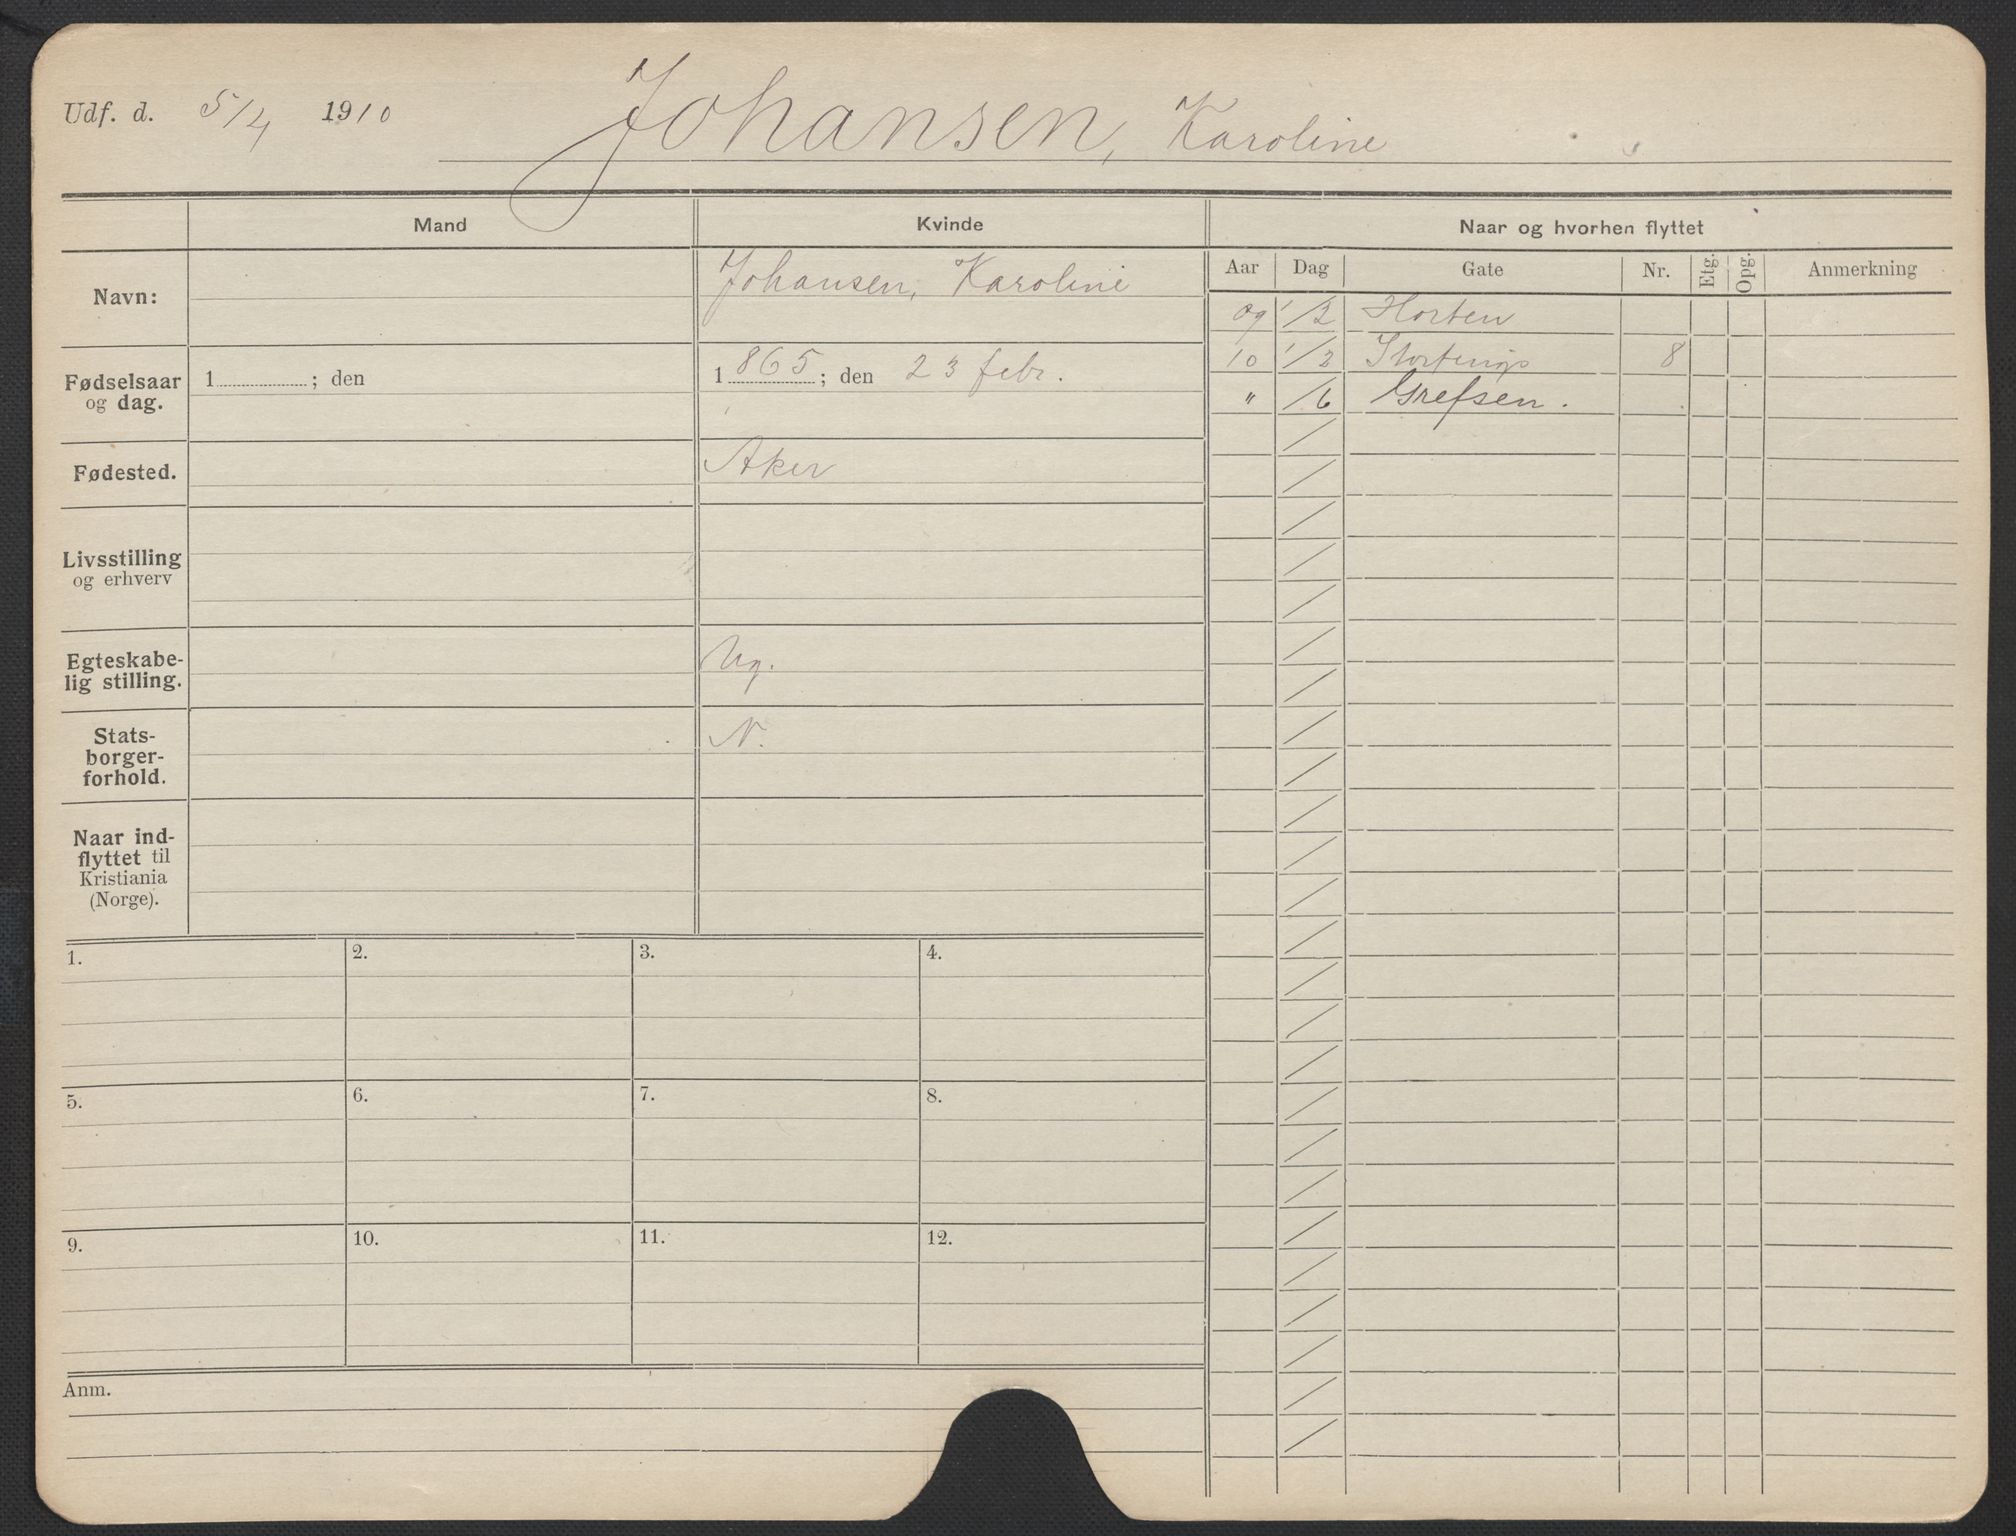 Udf. d. 5/4 1910 Johansen, Karoline
Mand Kvinde Naar og hvorhen flyttet
Navn: Johansen, Karoline
Fødselsaar og dag. 1 ; den 1865; den 23 febr.
Fødested. Aker
Livsstilling og erhverv
Egteskabe-
lig stilling. Ug.
Stats-
borger-
forhold. N.
Naar ind-
flyttet til
Kristiania
(Norge).
Aar Dag Gate Nr. Etg. Opg. Anmerkning
09 1/2 Horten
10 1/2 Stortings 8
" /6 Grefsen.
1. 2. 3. 4.
5. 6. 7. 8.
9. 10. 11. 12.
Anm.